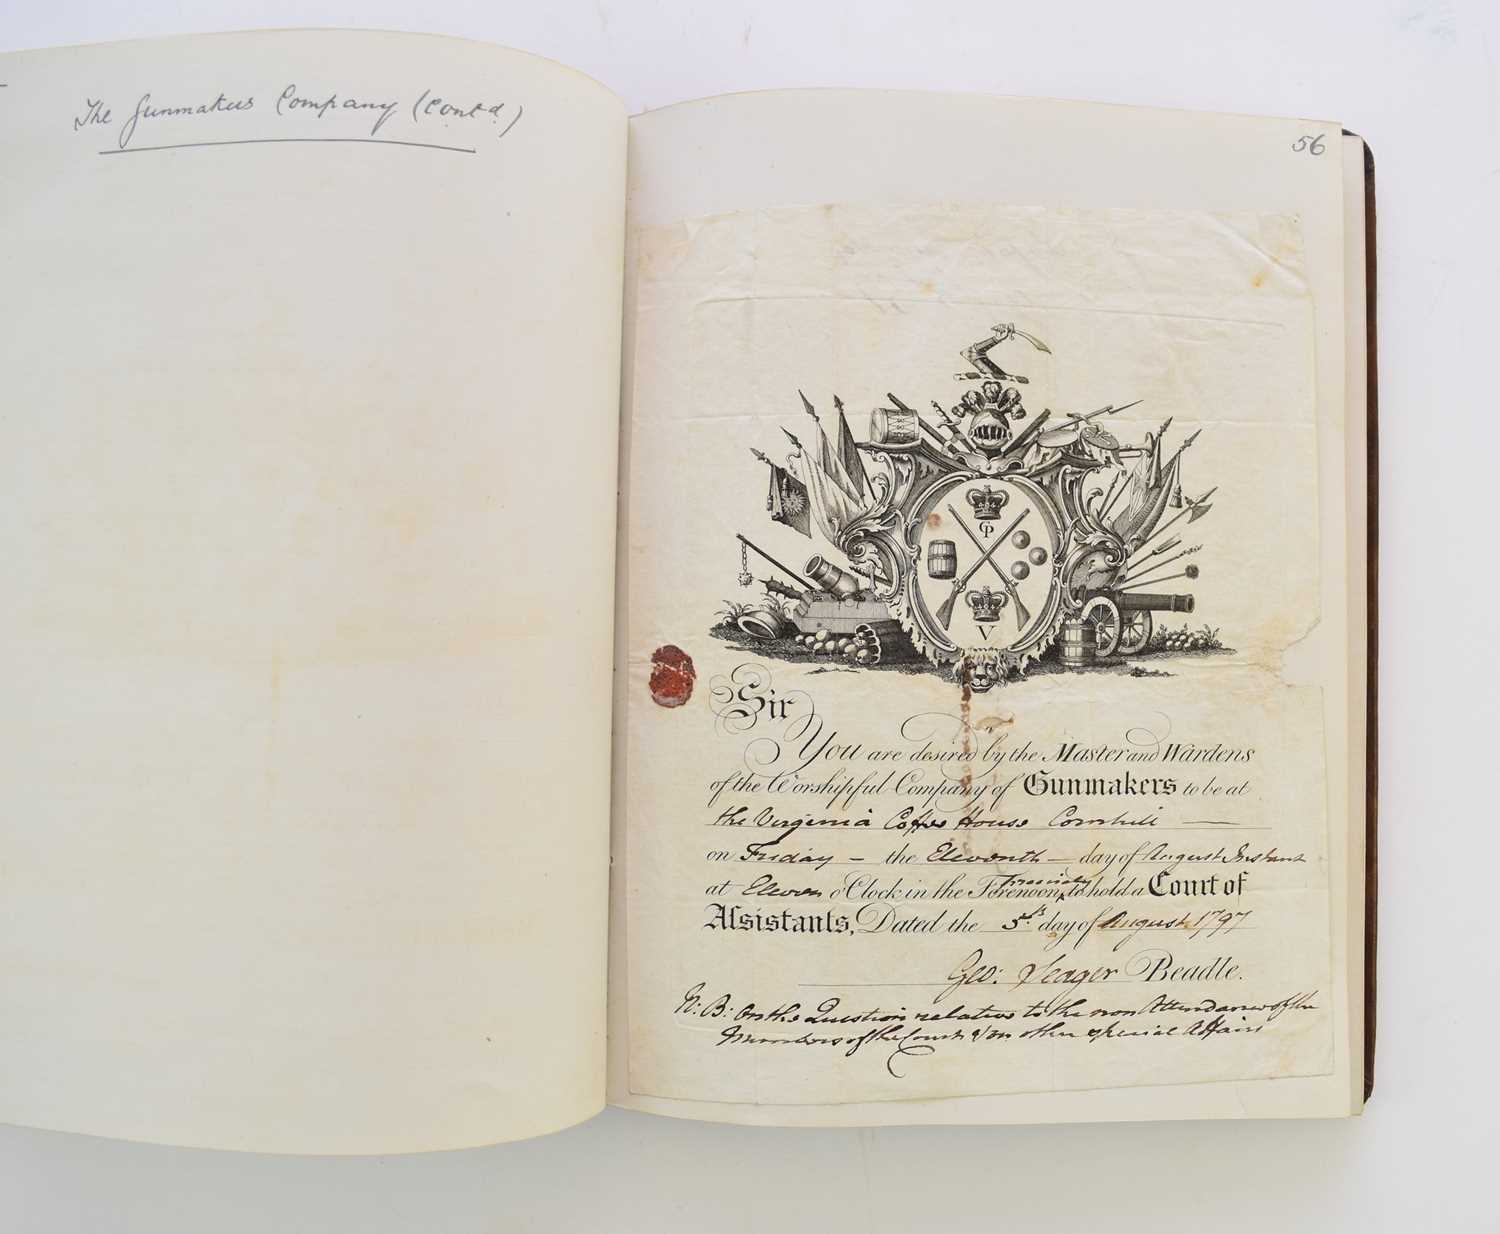 The Gunmakers Company (Contd.)
56
GP
V
Sir
You are desired by the Master and Wardens
of the Worshipful Company of Gunmakers to be at
the Virginia Coffee House Cornhill —
on Friday – the Eleventh – day of August Instant
at Eleven o'Clock in the Forenoon precisely to hold a Court of
Aſsistants, Dated the 5th. day of August 1797
Geo: Seager Beadle.
N: B: On the Question relative to the non Attendance of the
Members of the Court & on other special Affairs